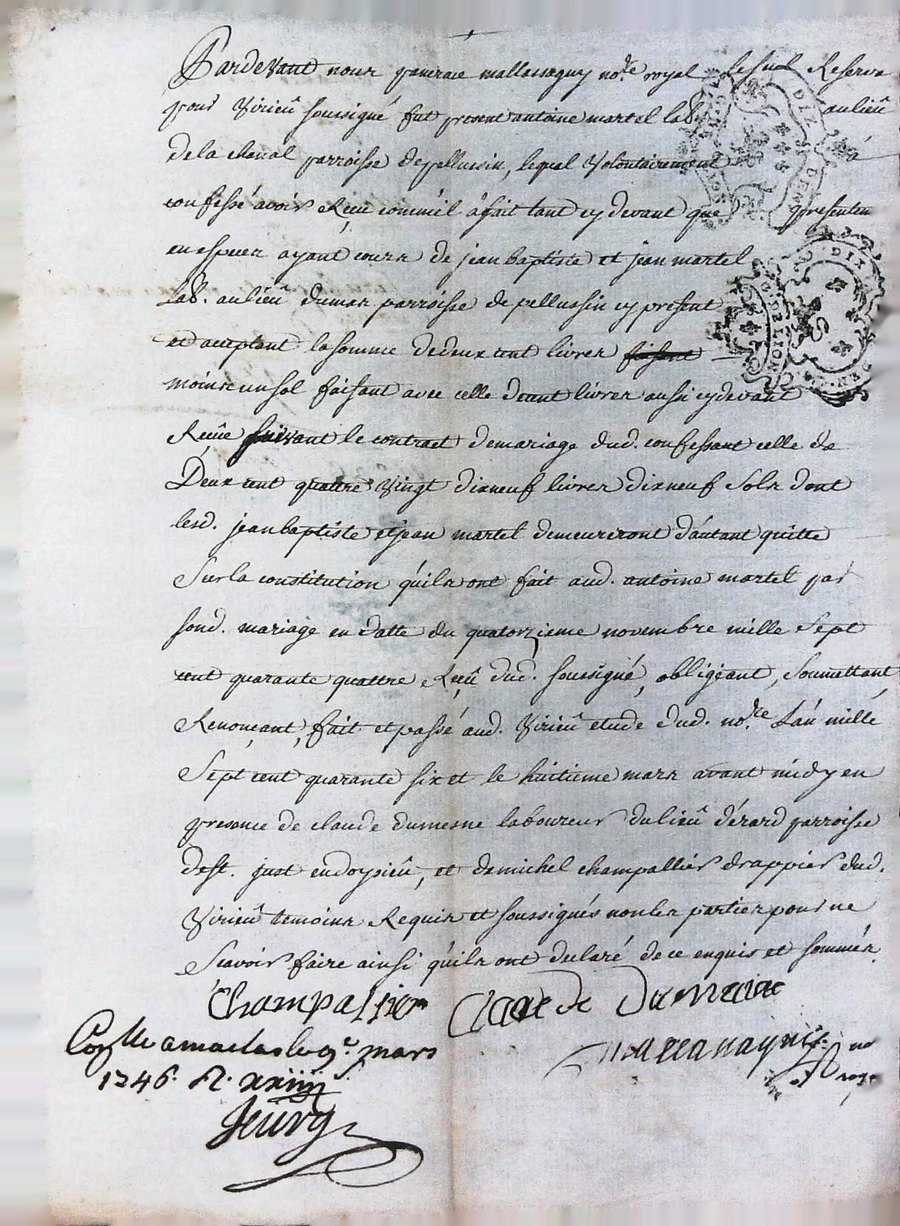 Pardevant nous mallassagny no.re royal le seul Reservé
pour Virieû soussigné fut present antoine martel lab. aulieû
de la cheval parroisse depellussin, lequel Volontairement à
confessé avoir Reçu comm'il à fait tant cy devant que presentem
en especes ayant cours de jean baptiste et jean martel
Lab. aulieû dumas parroisse de pellussin cy present
et aceptant la somme dedeux cent livres faisant
moins un sol faisant avec celle decent livres aussi cydevant
Reçüe suivant le contract demariage dud. confessant celle de
Deux cent quattre Vingt dixneuf livres dixneuf sols dont
lesd. jean baptiste et jean martel demeureront d'autant quitte
Sur la constitution qu'ils ont fait aud. antoine martel par
sond. mariage en datte du quatorzieme novembre mille sept
cent quarante quattre Reçû dud. soussigné, obligeant, soumettant
Renonçant, fait et passé aud. Virieû etude dud. no.re L'an mille
Sept cent quarante six et le huitieme mars avant midy en
presance de claude dumesne laboureur du lieû d'érard parroisse
de st. just en doysieû, et de michel champallier drappier dud.
Virieû temoins Requis et soussignés non les parties pour ne
Scavoir faire ainsi qu'ils ont declaré de ce enquis et sommés
Champallier Claude Dumaine
Con.lle amaclas le 9.e mars
1746. R. xxiiij s.
Jeury